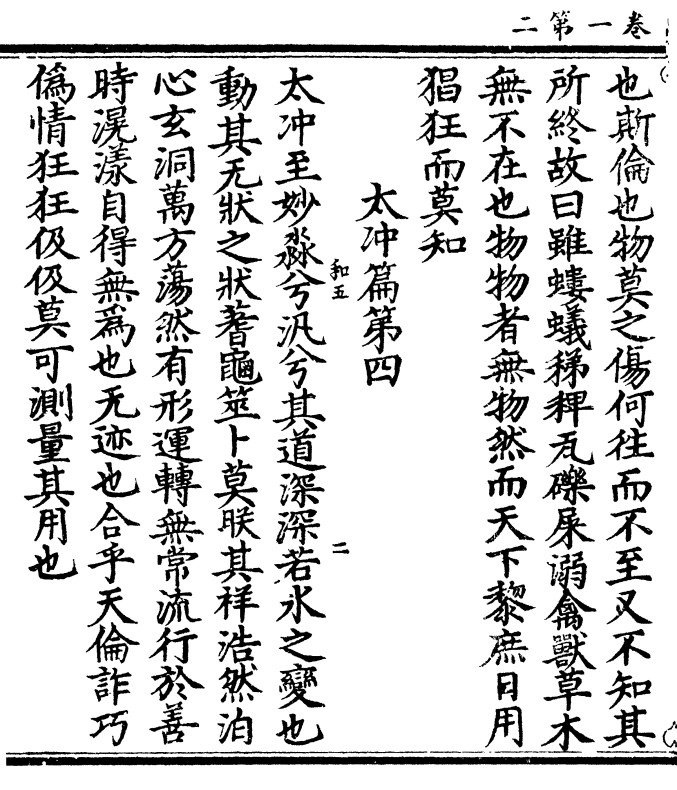 卷一第二
也斯倫也物莫之傷何往而不至又不知其
所終故曰雖螻蟻稊稗瓦礫屎溺禽獸草木
無不在也物物者無物然而天下黎庶日用
猖狂而莫知
太冲篇第四
和五
二
太冲至妙淼兮汎兮其道深深若氷之變也
動其无狀之狀蓍龜筮卜莫眹其祥浩然泊
心玄洞萬方蕩然有形運轉無常流行於善
時滉漾自得無爲也无迹也合乎天倫詐巧
僞情狂狂伋伋莫可測量其用也